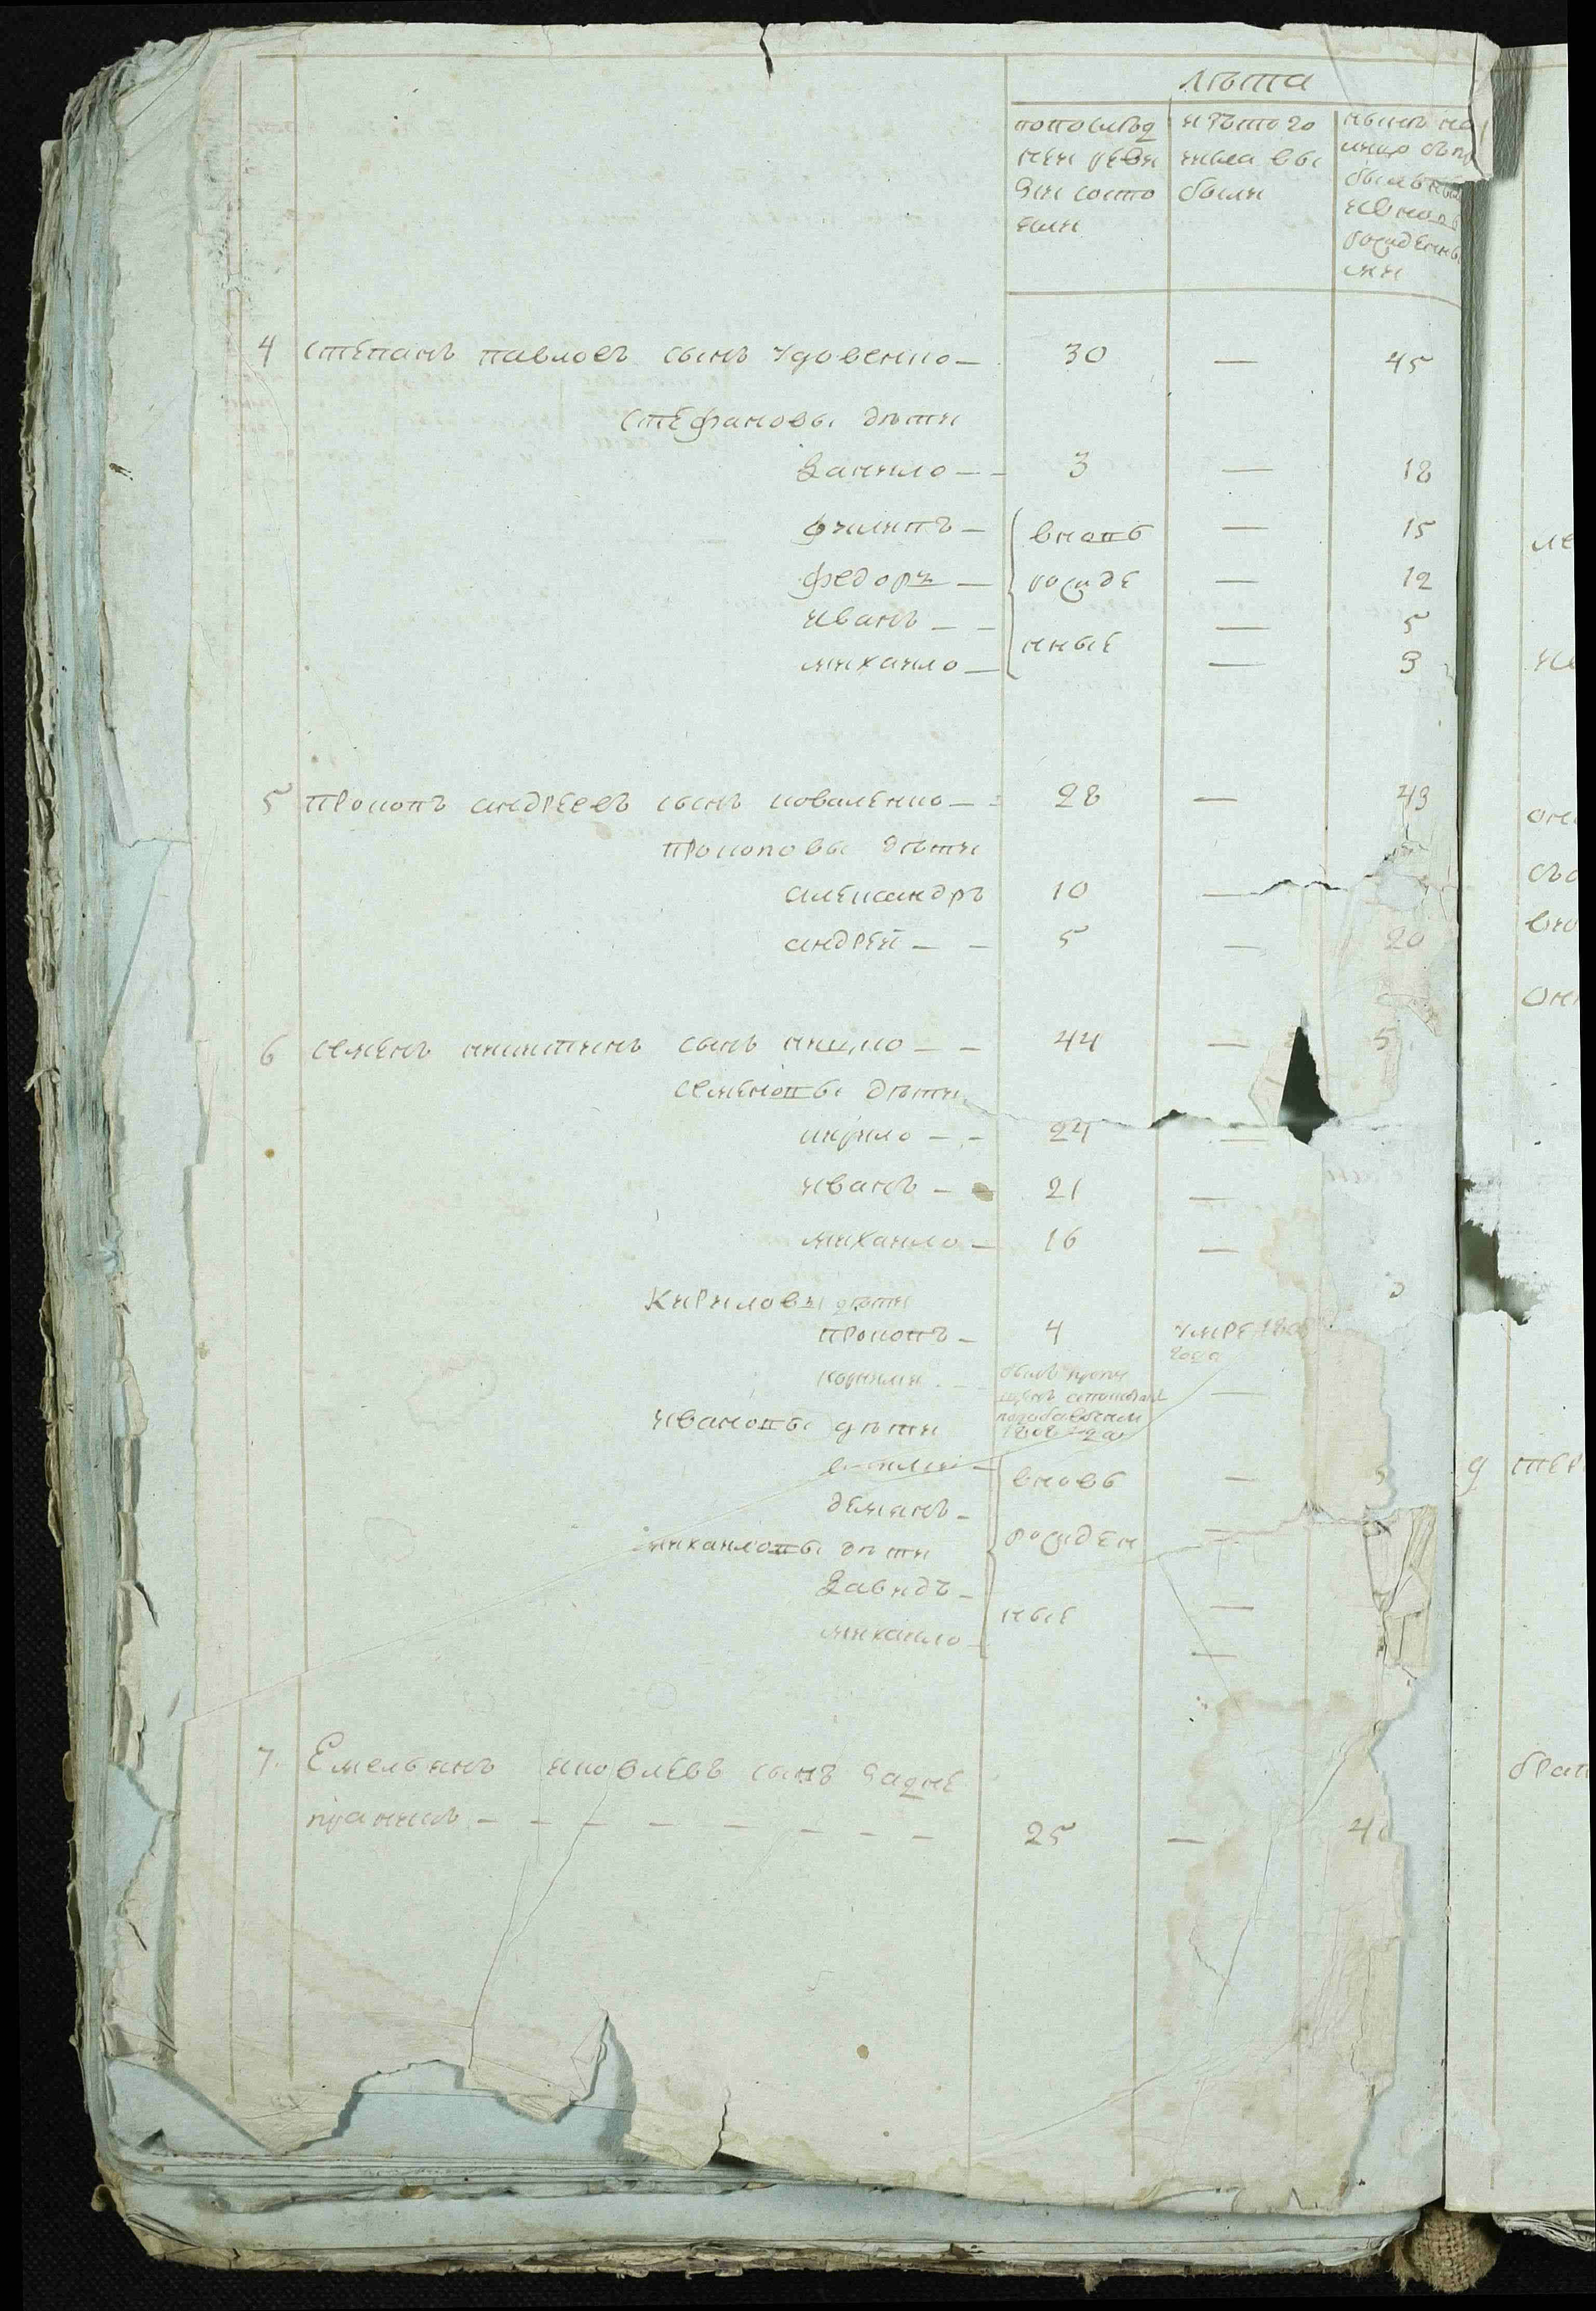 Лѣта
попослѣд нѣй реви зіи состо яли
изътого числа вы были
нынѣ на лицо съпри былыми ивновь рожденны ми
4 степанъ павловъ сынъ удовенко — 30 — 45
стефановы дѣти
данило — — 3 — 18
филипъ — вновь — 15
федоръ — рожде — 12
иванъ — — — 5
михайло — нные — 3
5 прокопъ андреевъ сынъ коваленко — 28 — 43
прокоповы дѣти
александръ 10 —
андрей — — 5 — 20
6 семенъ никитинъ сынъ — — 44 — 5
семеновы дѣти
кирило — — 24 —
иванъ — — 21 —
михайло — 16 —
Кириловы дѣти
прокопъ — 4 умре 180
года
корнили — былъ пропи
щенъ
—
1808 года
ивановы дѣти
вновь —
демянъ —
михайловы дѣти рожден —
давидъ — —
михайло — ные —
7. Емельянъ яковлевъ сынъ задне
праникъ — — — — — — — — 25 — 4
9